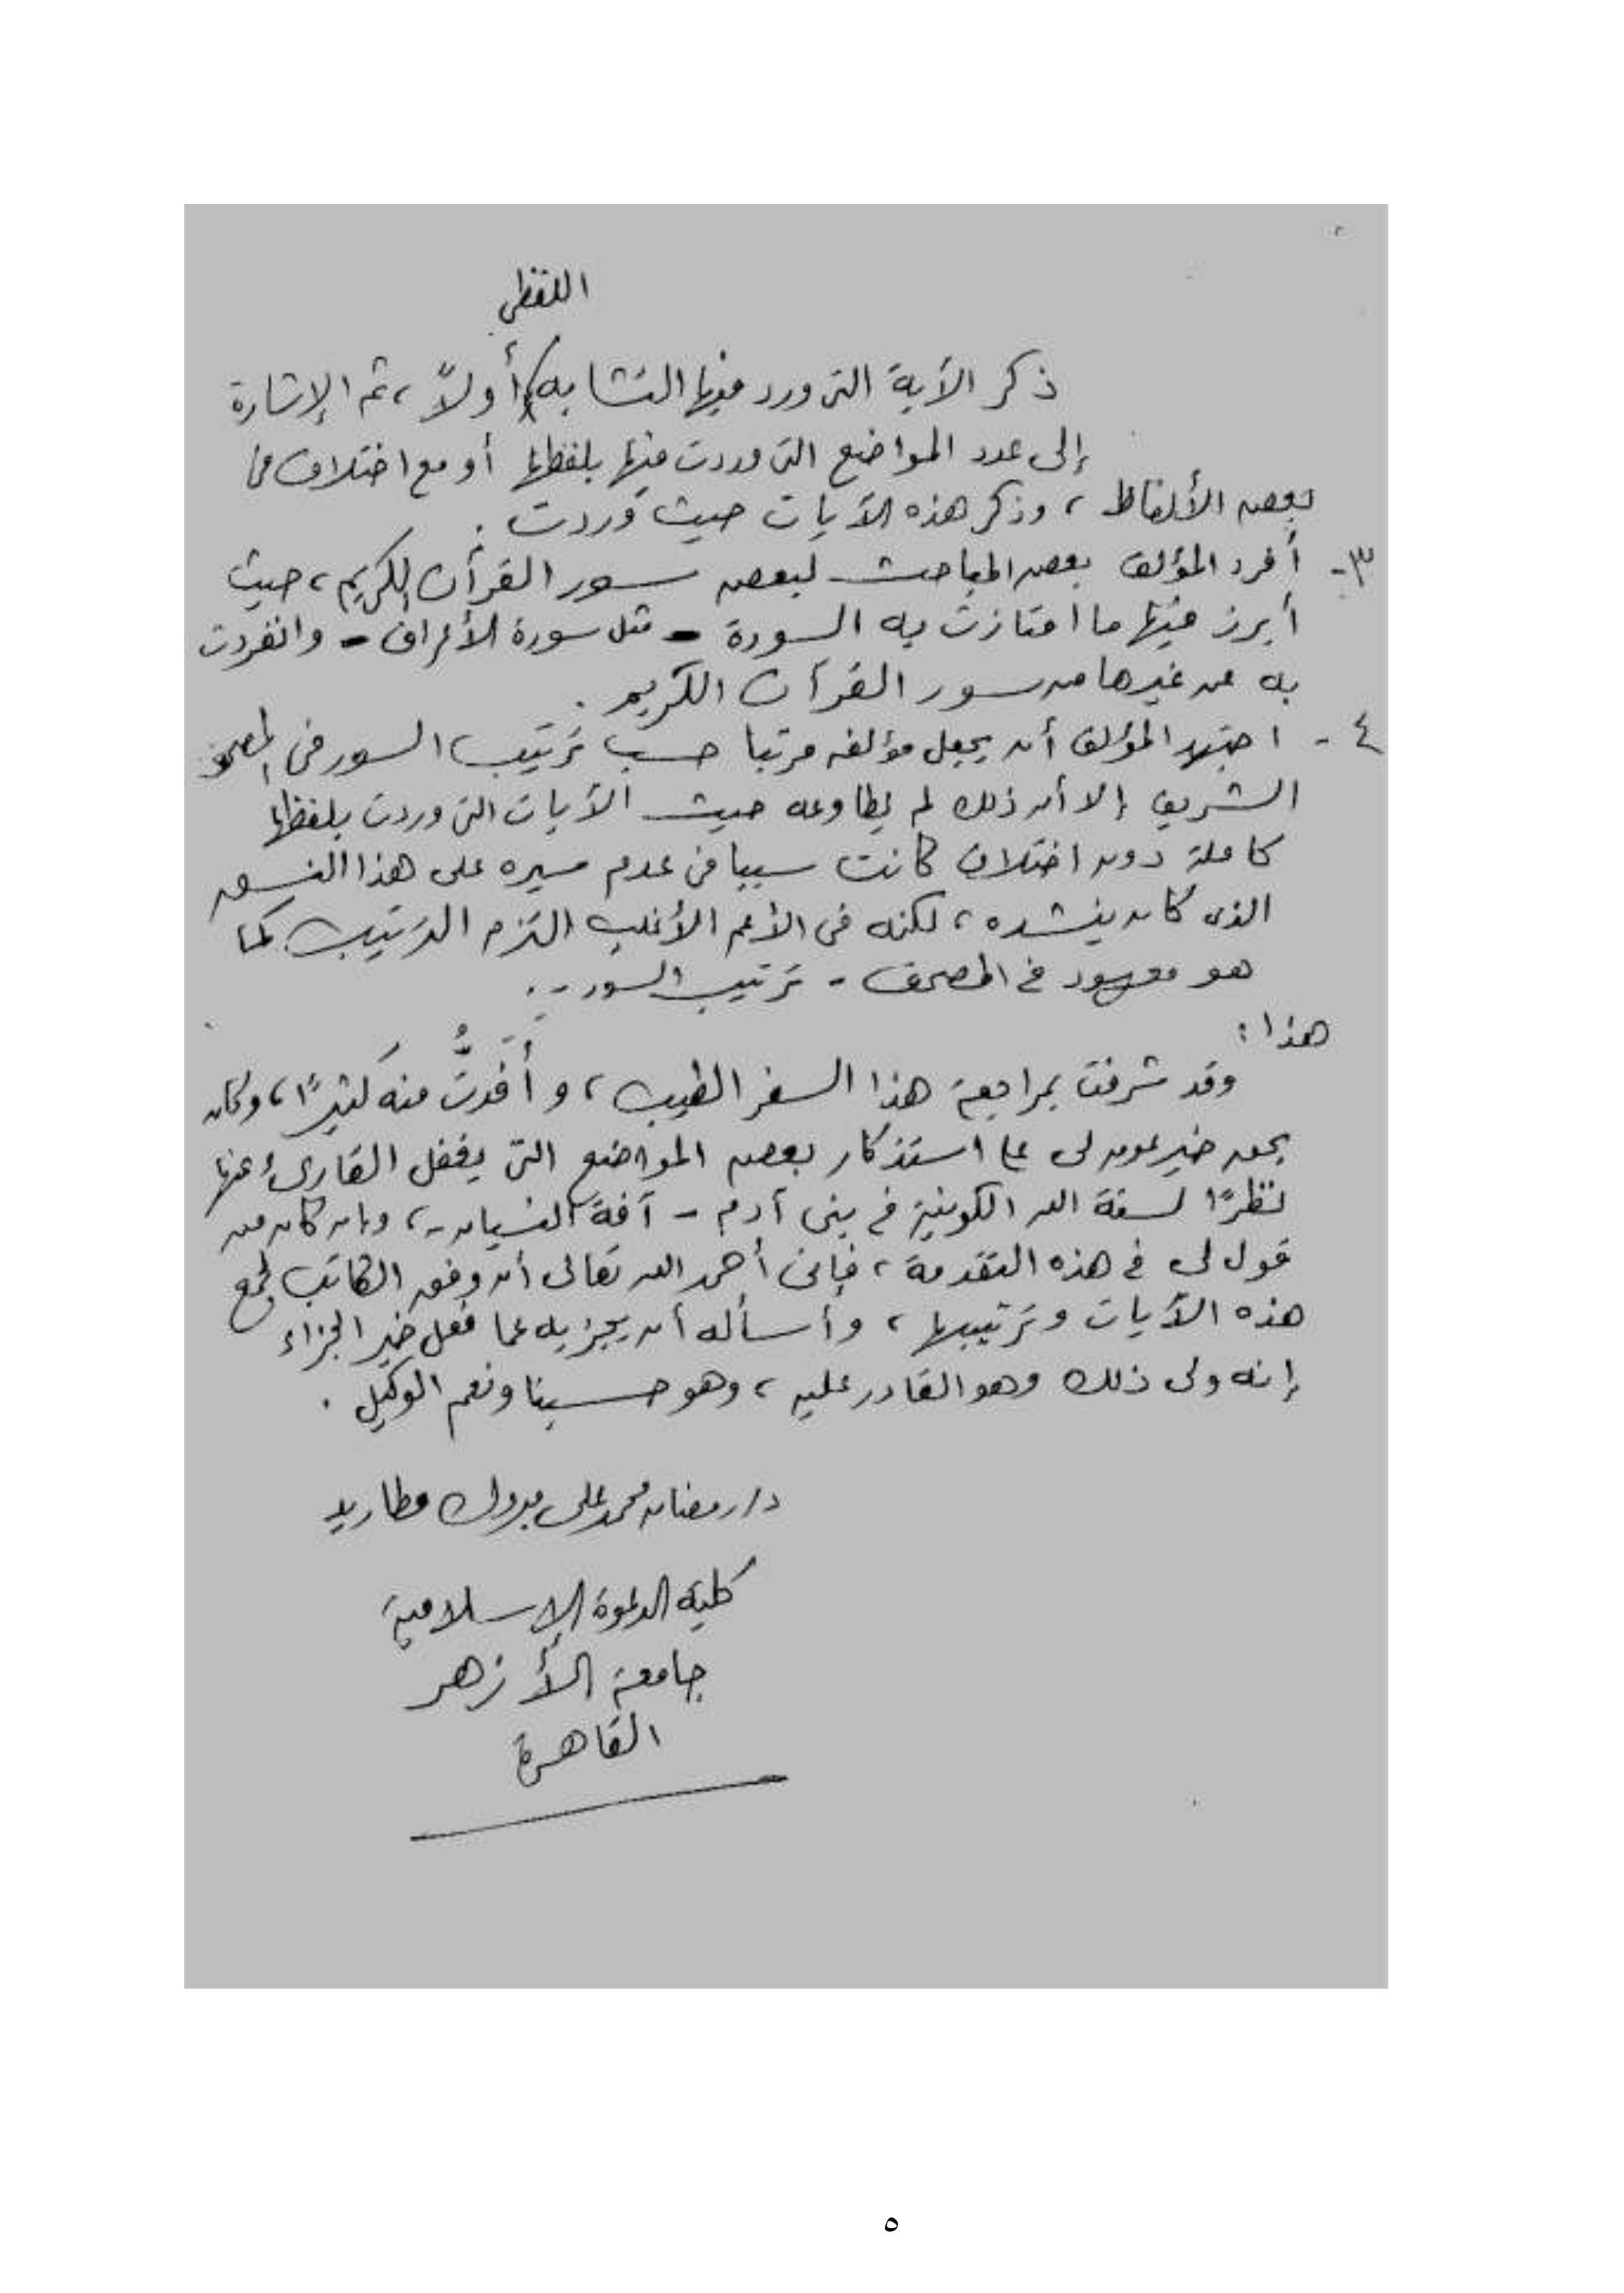 اللفظى
ذكر الآية التى ورد فيها التشابه أولاً، ثم الإشارة
إلى عدد المواضع التى وردت فيها بلفظها أو مع اختلاف فى
بعض الألفاظ، وذكر هذه الآيات حيث وردت.
٣- أفرد المؤلف بعض المباحث لبعض سور القرآن الكريم، حيث
أبرز فيها ما امتازت به السورة - مثل سورة الأعراف - وانفردت
به عن غيرها من سور القرآن الكريم.
٤- اجتهد المؤلف أن يجعل مؤلفه مرتبا حسب ترتيب السور فى المصحف
الشريف إلا أن ذلك لم يطاوعه حيث الآيات التى وردت بلفظها
كاملة دون اختلاف كانت سببا فى عدم سيره على هذا النسق
الذى كان ينشده، لكنه فى الأعم الأغلب التزم الترتيب كما
هو معهود فى المصحف - ترتيب السور -.
هذا:
وقد شرفت بمراجعة هذا السفر الطيب، و أَفَدتُّ منه كثيرًا، وكان
بحق خير عون لى على استذكار بعض المواضع التى يغفل القارئ عنها
نظرًا لسنة الله الكونية فى بنى آدم - آفة النسيان -، وإن كان من
قول لى فى هذه التقدمة، فإنى أحمد الله تعالى أن وفق الكاتب لجمع
هذه الآيات وترتيبها، وأسأله أن يجزيه عما فعل خير الجزاء
إنه ولى ذلك وهو القادر عليه، وهو حسبنا ونعم الوكيل.
د/ رمضان محمد على مبروك مطاريد
كلية الدعوة الإسلامية
جامعة الأزهر
القاهرة
٥